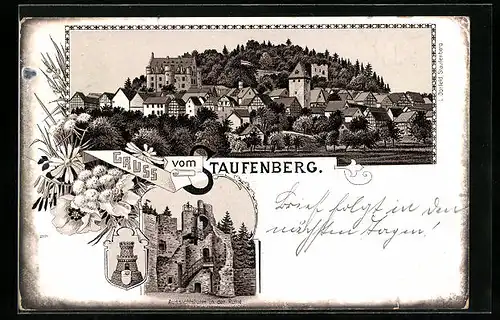 GRUSS vom STAUFENBERG.
Brief folgt in den
nächsten Tagen!
Aussichtsturm in der Ruine